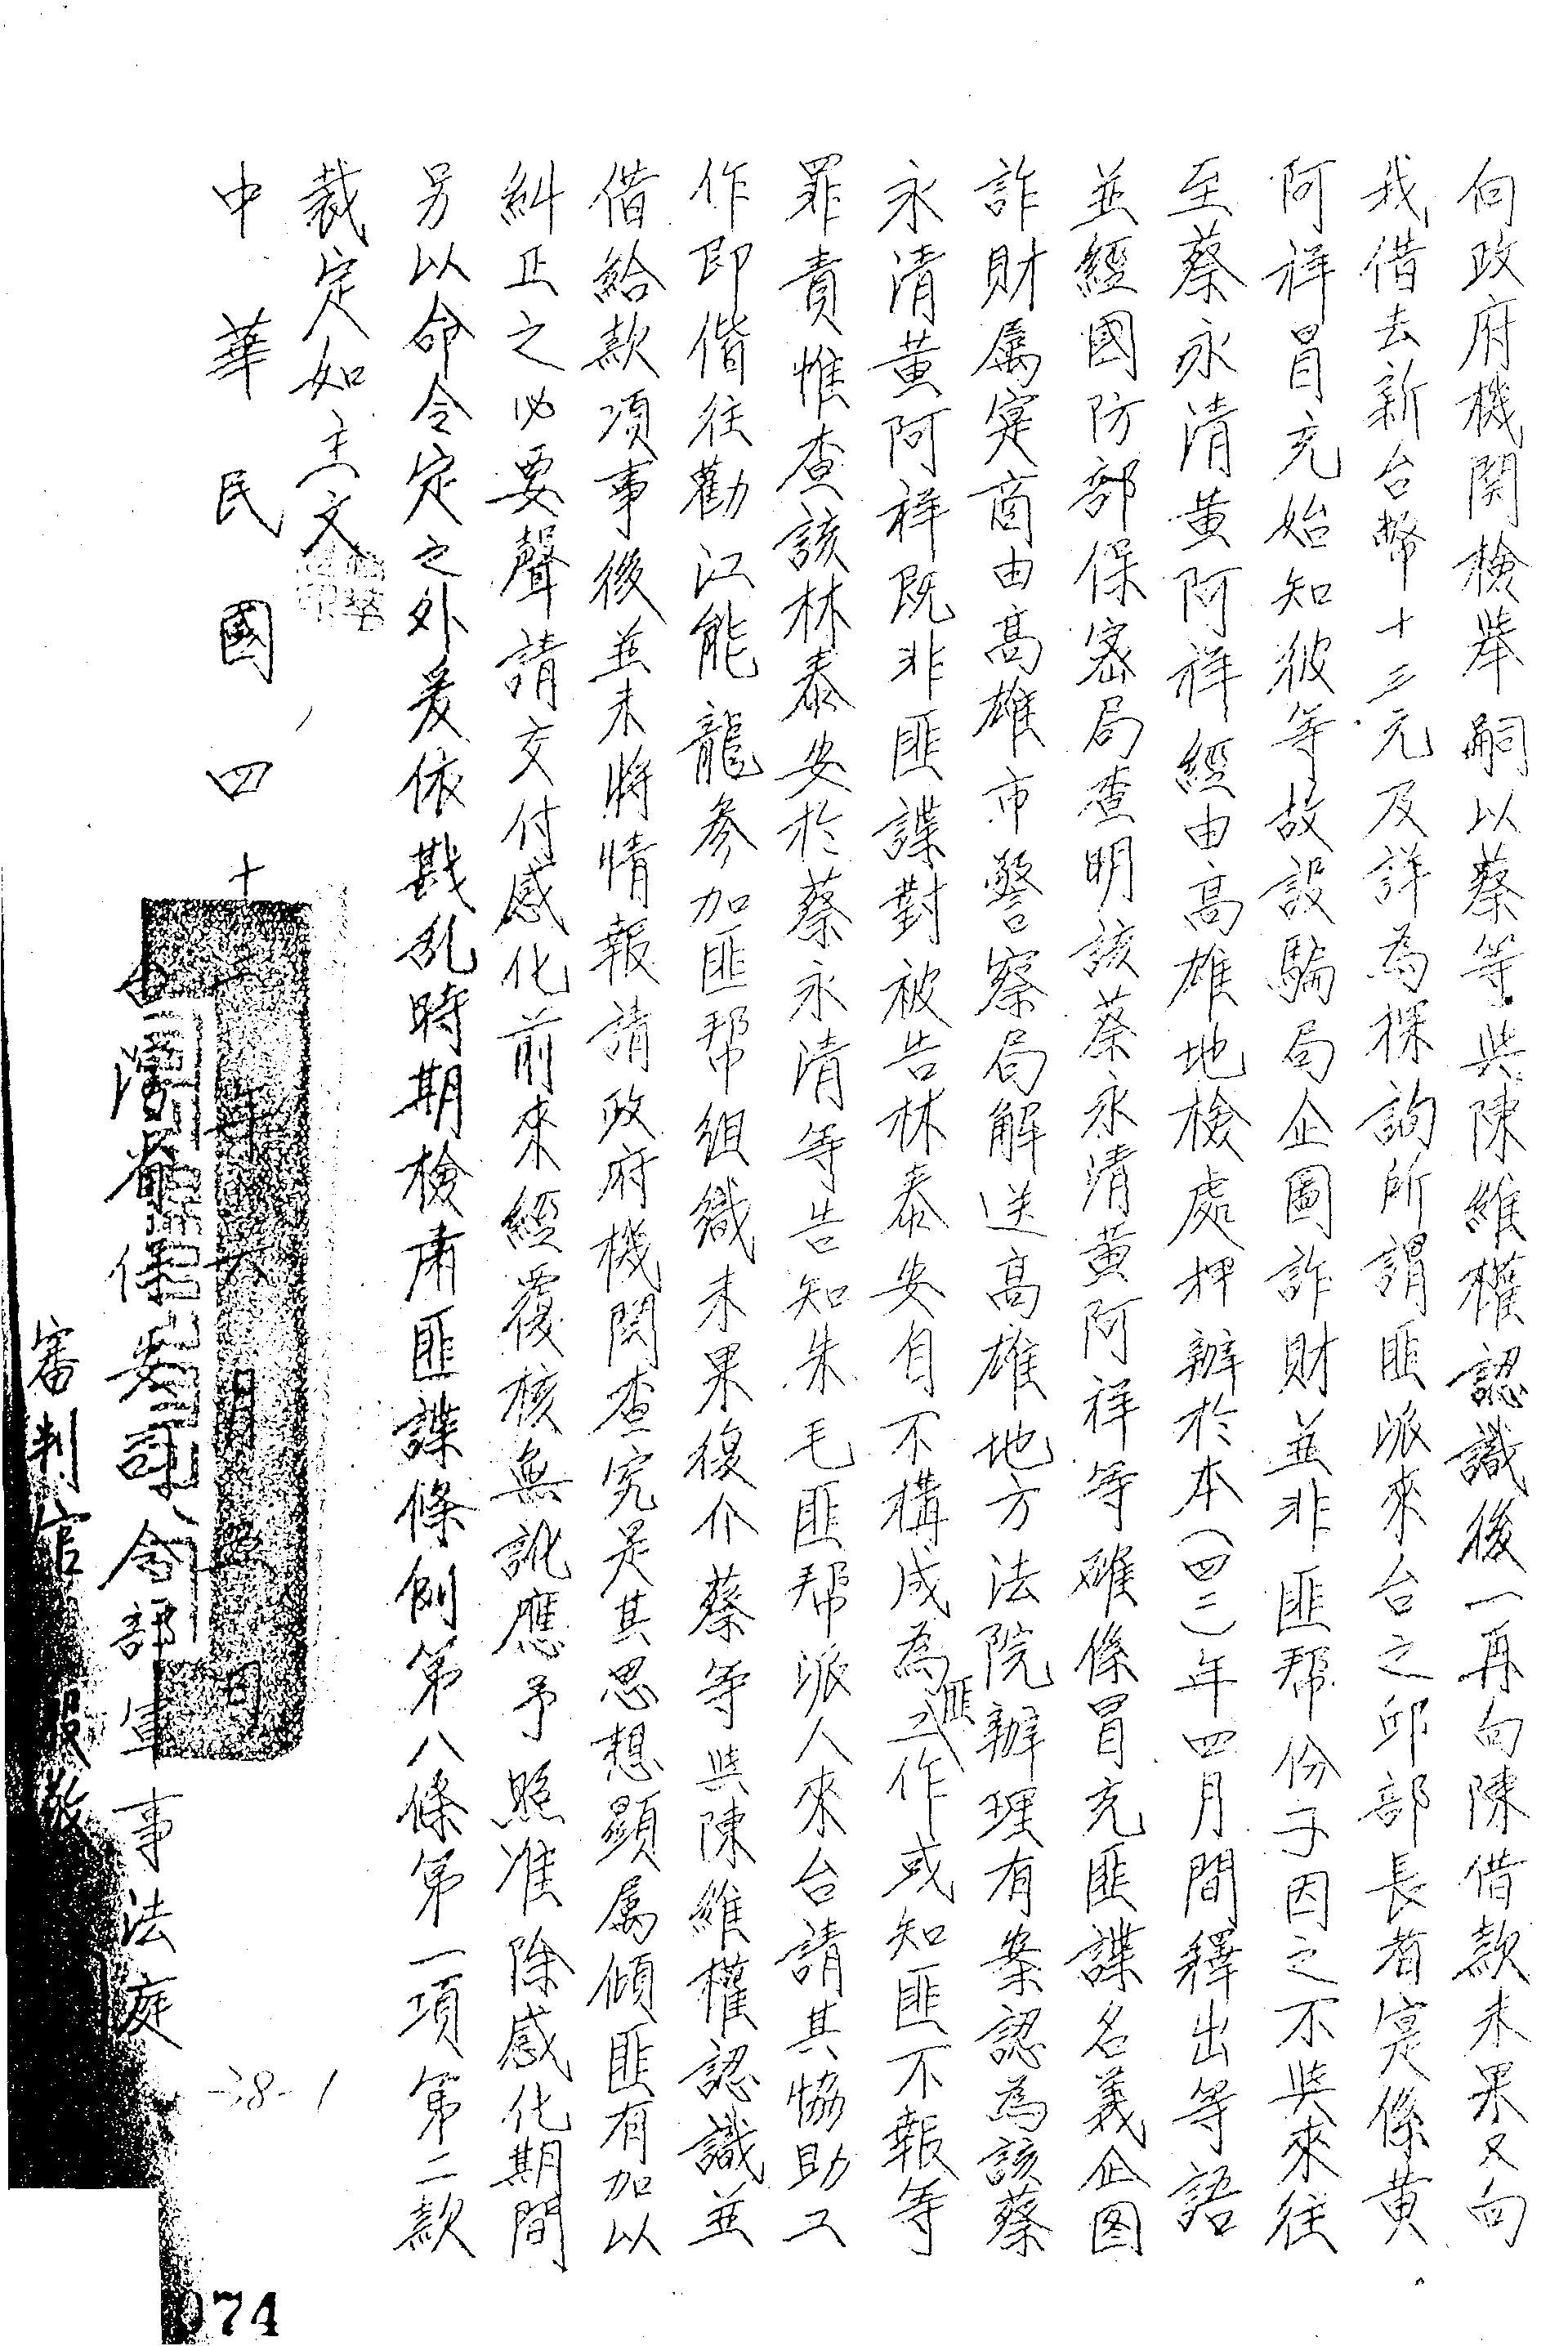 向政府機関檢举嗣以蔡等與陳維權認識後一再向陳借款未果又向
我借去新台幣十三元及詳為探詢所謂匪派來台之邱部長者寔係黄
阿祥冒充始知彼等故設騙局企圖詐財並非匪帮份子因之不與來往
至蔡永清黄阿祥經由高雄地檢處押辦於本（四二）年四月間釋出等語
並經國防部保密局查明該蔡永清黄阿祥等確係冒充匪諜名義企图
詐財属寔啇由高雄市警察局解送高雄地方法院辦理有案認為該蔡
永清黄阿祥既非匪諜對被告林泰安自不構成為匪工作或知匪不報等
罪責惟查該林泰安於蔡永清等告知朱毛匪帮派人來台請其協助工
作即偕往勸江能龍参加匪帮组織未果復介蔡等與陳維權認識並
借給款項事後並未將情報請政府機関查究是其思想顕属傾匪有加以
糾正之必要聲請交付感化前來經覆核無訛應予照准除感化期間
另以命令定之外爰依戡乱時期檢肅匪諜條例第八條第一項第二款
裁定如主文
中華民國四十二年六月 日
台灣省保安司令部軍事法庭
審判官殷敬
-38-1
074